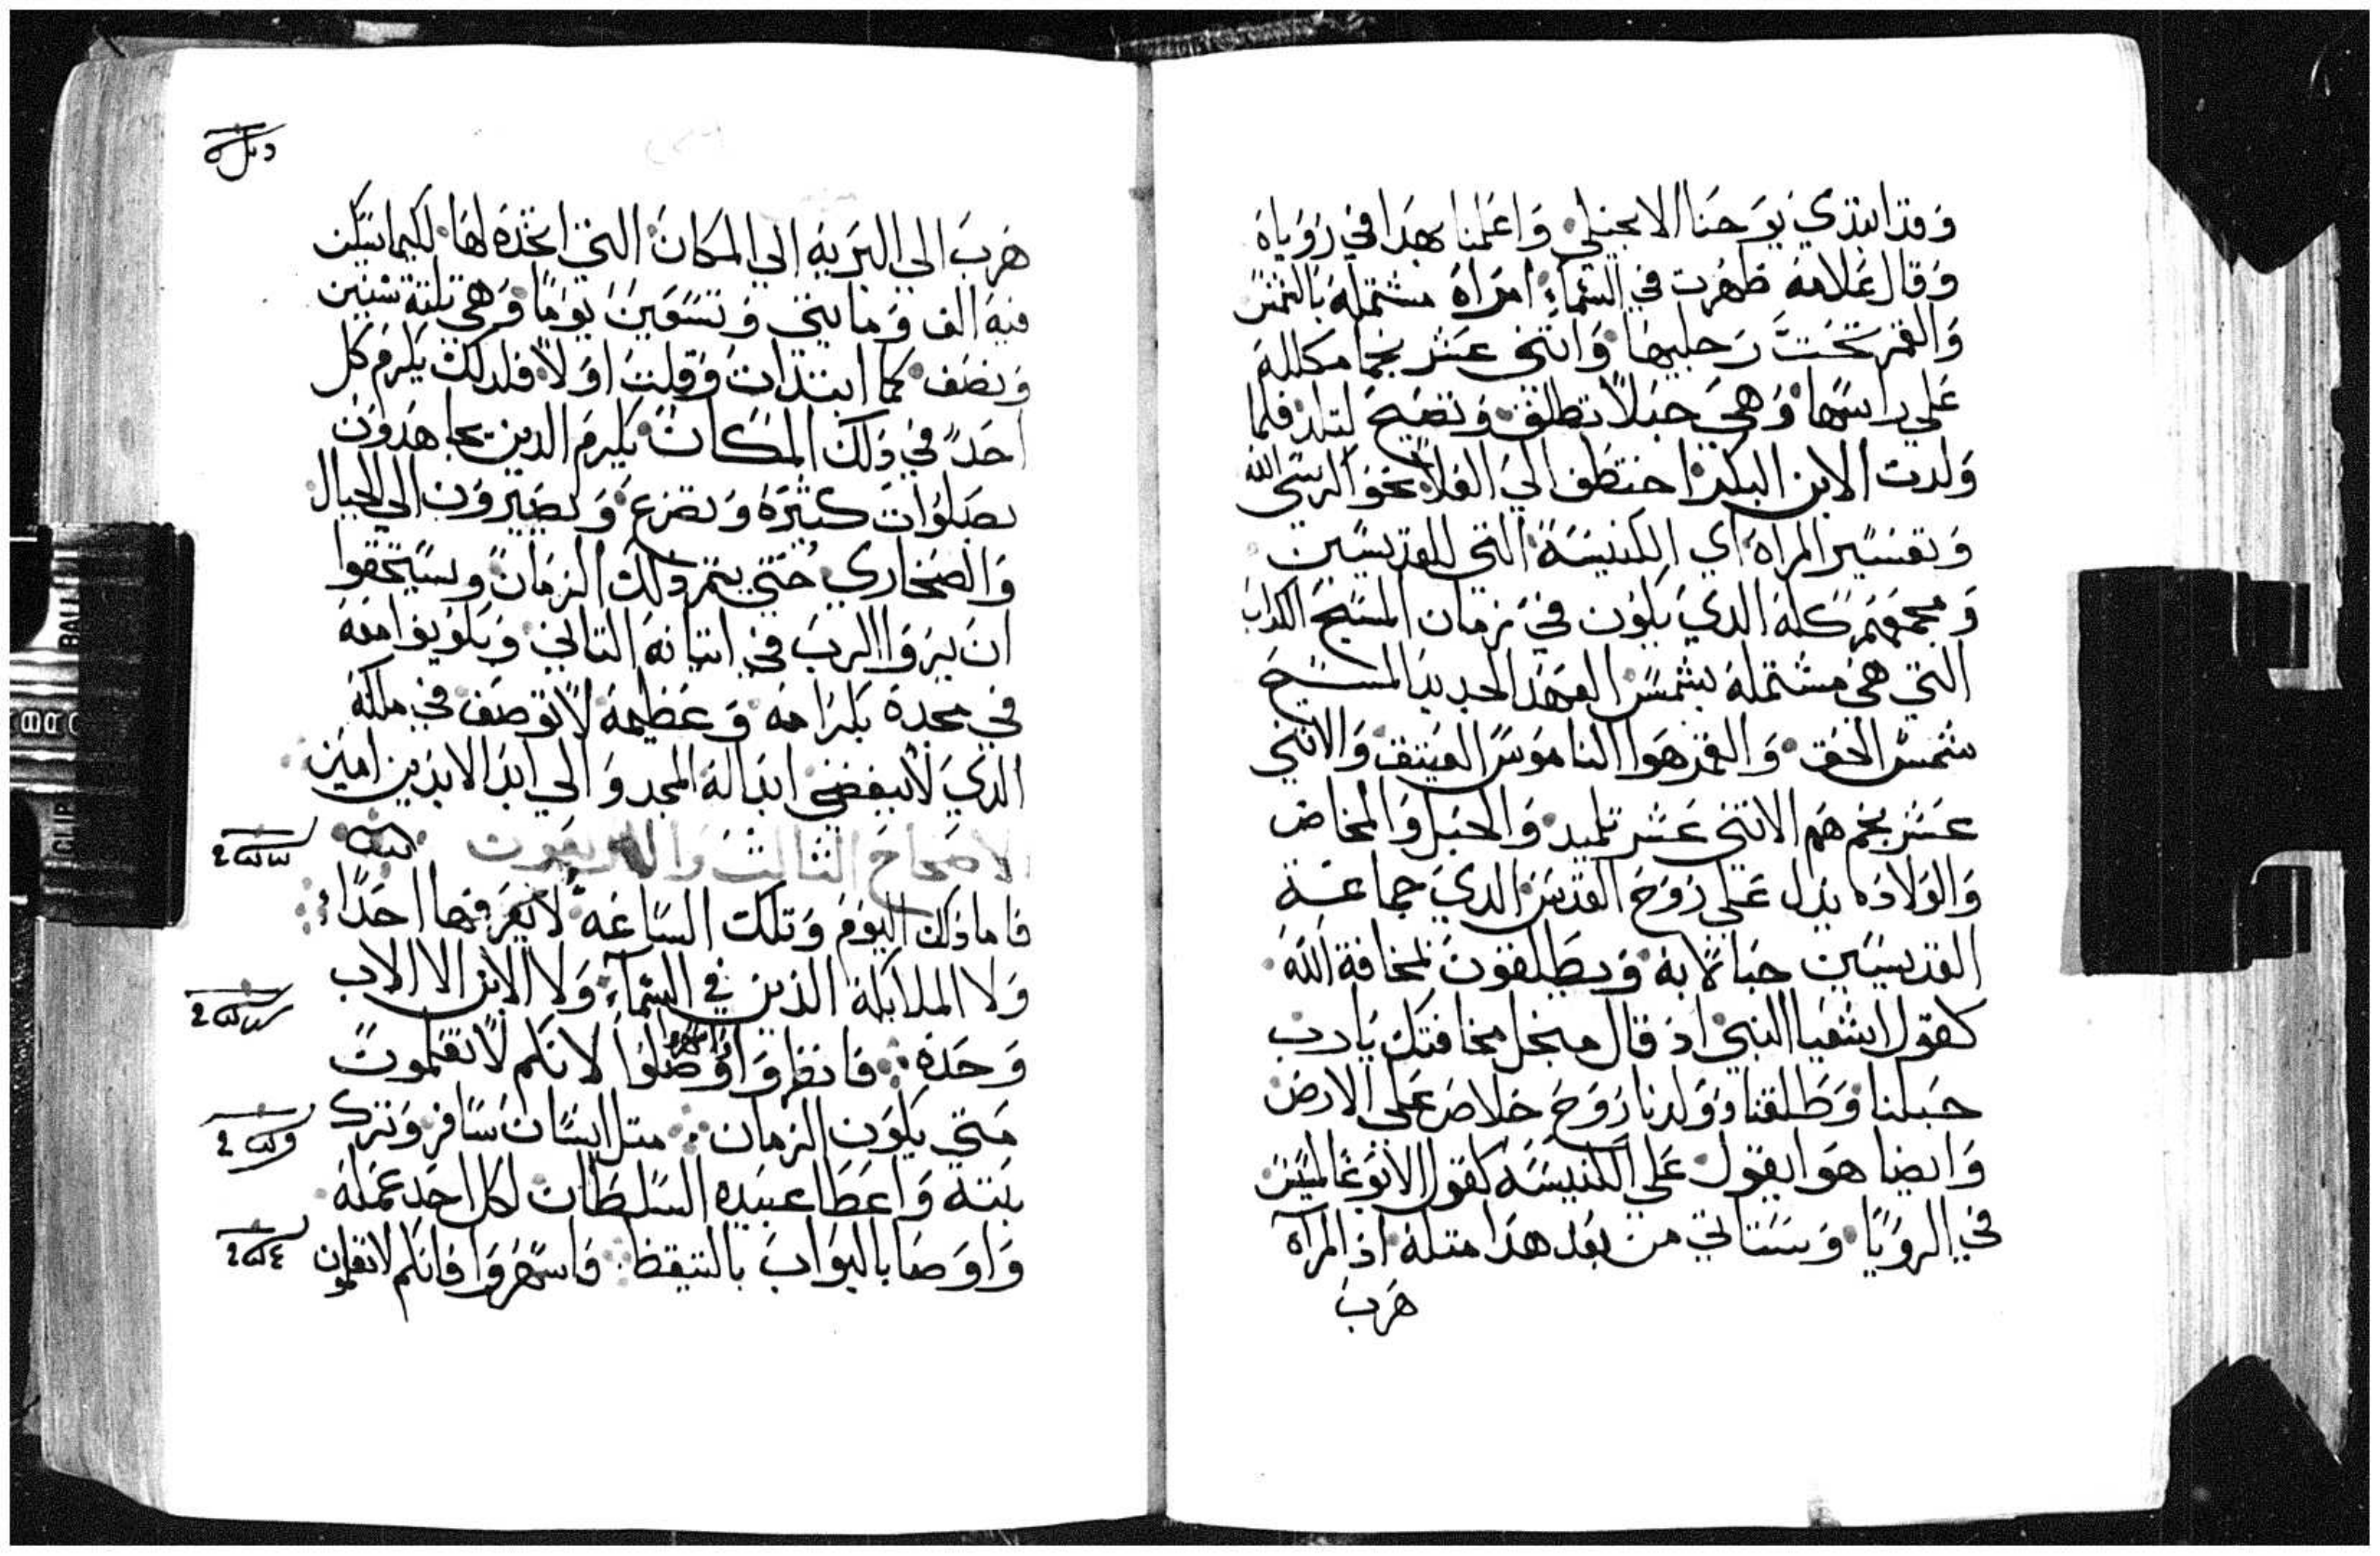 وقد ابتدي يوحنا الانجيلي واعلمنا بهدا في رؤياه
وقال علامة ظهرت في السماء امراة مشتملة بالشمس
والقمر تحت رجليها واتني عشر نجما مكللة
علي راسها وهي حبلا تطلق وتصيح لتلد فلما
ولدت الابن البكر اختطف الي العلا نحو كرسي الله
وتفسير المراه اي الكنيسة التي للقديسين
ومجمعهم كله الدي يكون في زمان المسيح الكداب
التي هي مشتملة بشمس العهد الجديد المسيح
شمس الحق والقمر هوا الناموس العتيق والاتني
عشر نجم هم الاتني عشر تلميد والحبل والمخاض
والولاده يدل علي روح القدس الدي جماعة
القديسين حبالا به ويطلقون لمخافة الله
كقول اشعيا النبي اذ قال من اجل مخافتك يا رب
حبلنا وطلقنا وولدنا روح خلاص علي الارض
وايضا هوا يقول علي الكنيسه كقول الاتوغالسيس
في الرويا وستاتي من بعد هدا متله اذ المراه
هرب
هرب الي البرية الي المكان التي اتخده لها لكيما تسكن
فيه الف ومايتي وتسعين يوما وهي تلتة سنين
ونصف كما ابتدات وقلت اولا فلدلك يلزم كل
احد في دلك المكان يلزم الدين يجاهدون
بصلوات كتيرة وتضرع ويصيرون الي الجبال
والصخاري حتي يتم دلك الزمان ويستحقوا
ان يروا الرب في اتيانه التاني ويكونوا معه
في مجده بكرامه وعظيمة لا توصف في ملكه
الدي لا ينقضي ابدا له المجد والي ابد الابدين امين
الاصحاح الثالث والاربعون
فاما دلك اليوم وتلك الساعة لا يعرفها احدا
ولا الملايكة الذين في السماء ولا الابن الا الاب
وحده فانظروا واسهروا وصلوا لانكم لا تعلمون
متي يكون الزمان متل انسان سافر وترك
بيته واعطا عبيده السلطان لكل احد عمله
واوصا بالبواب بالتيقظ فاسهروا فانكم لا تعلمون